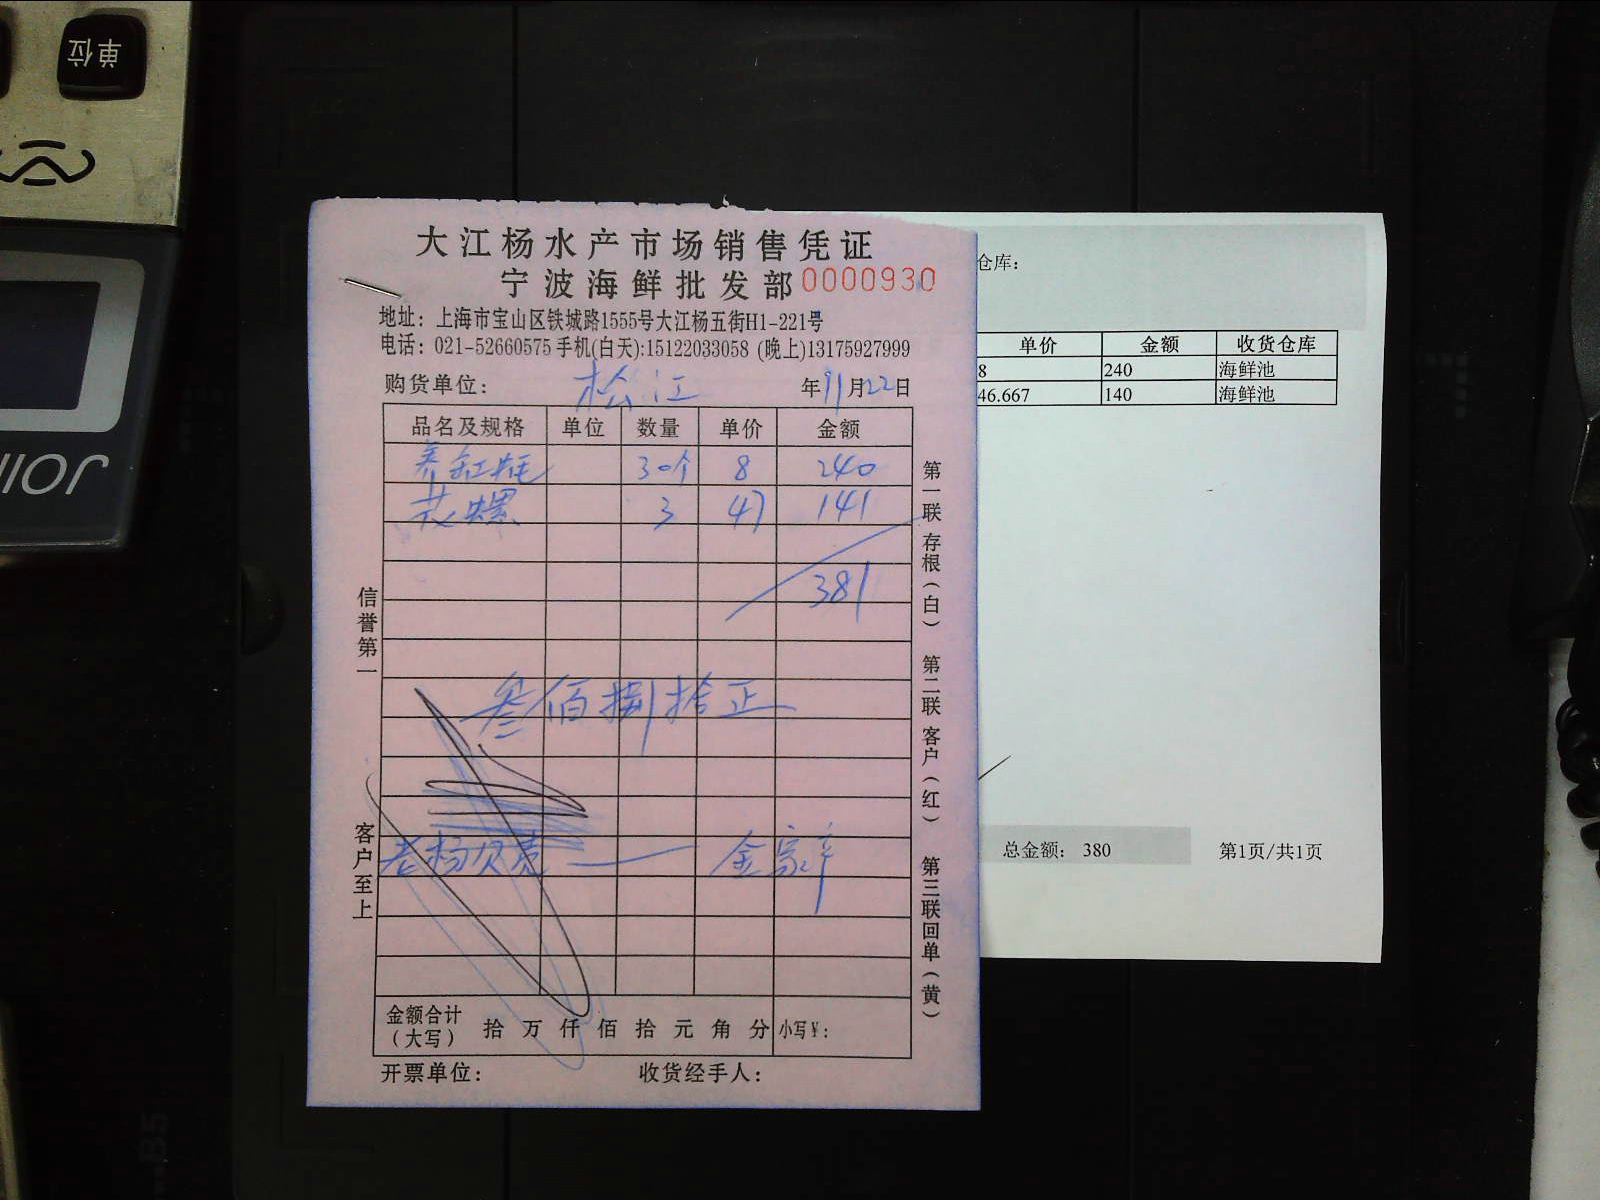 单位
大江杨水产市场销售凭证
宁波海鲜批发部 0000930
地址：上海市宝山区铁城路1555号大江杨五街H1-221号
电话：021-52660575 手机(白天):15122033058 (晚上)13175927999
购货单位： 松江 年11月22日
品名及规格 单位 数量 单价 金额
30个 8 240
花螺 3 47 141
381
叁佰捌拾正
金额合计（大写） 拾 万 仟 佰 拾 元 角 分 小写￥：
开票单位： 收货经手人：
信誉第一
客户至上
第一联 存根（白） 第二联 客户（红） 第三联 回单（黄）
仓库：
单价 金额 收货仓库
8 240 海鲜池
46.667 140 海鲜池
总金额： 380 第1页/共1页
B5